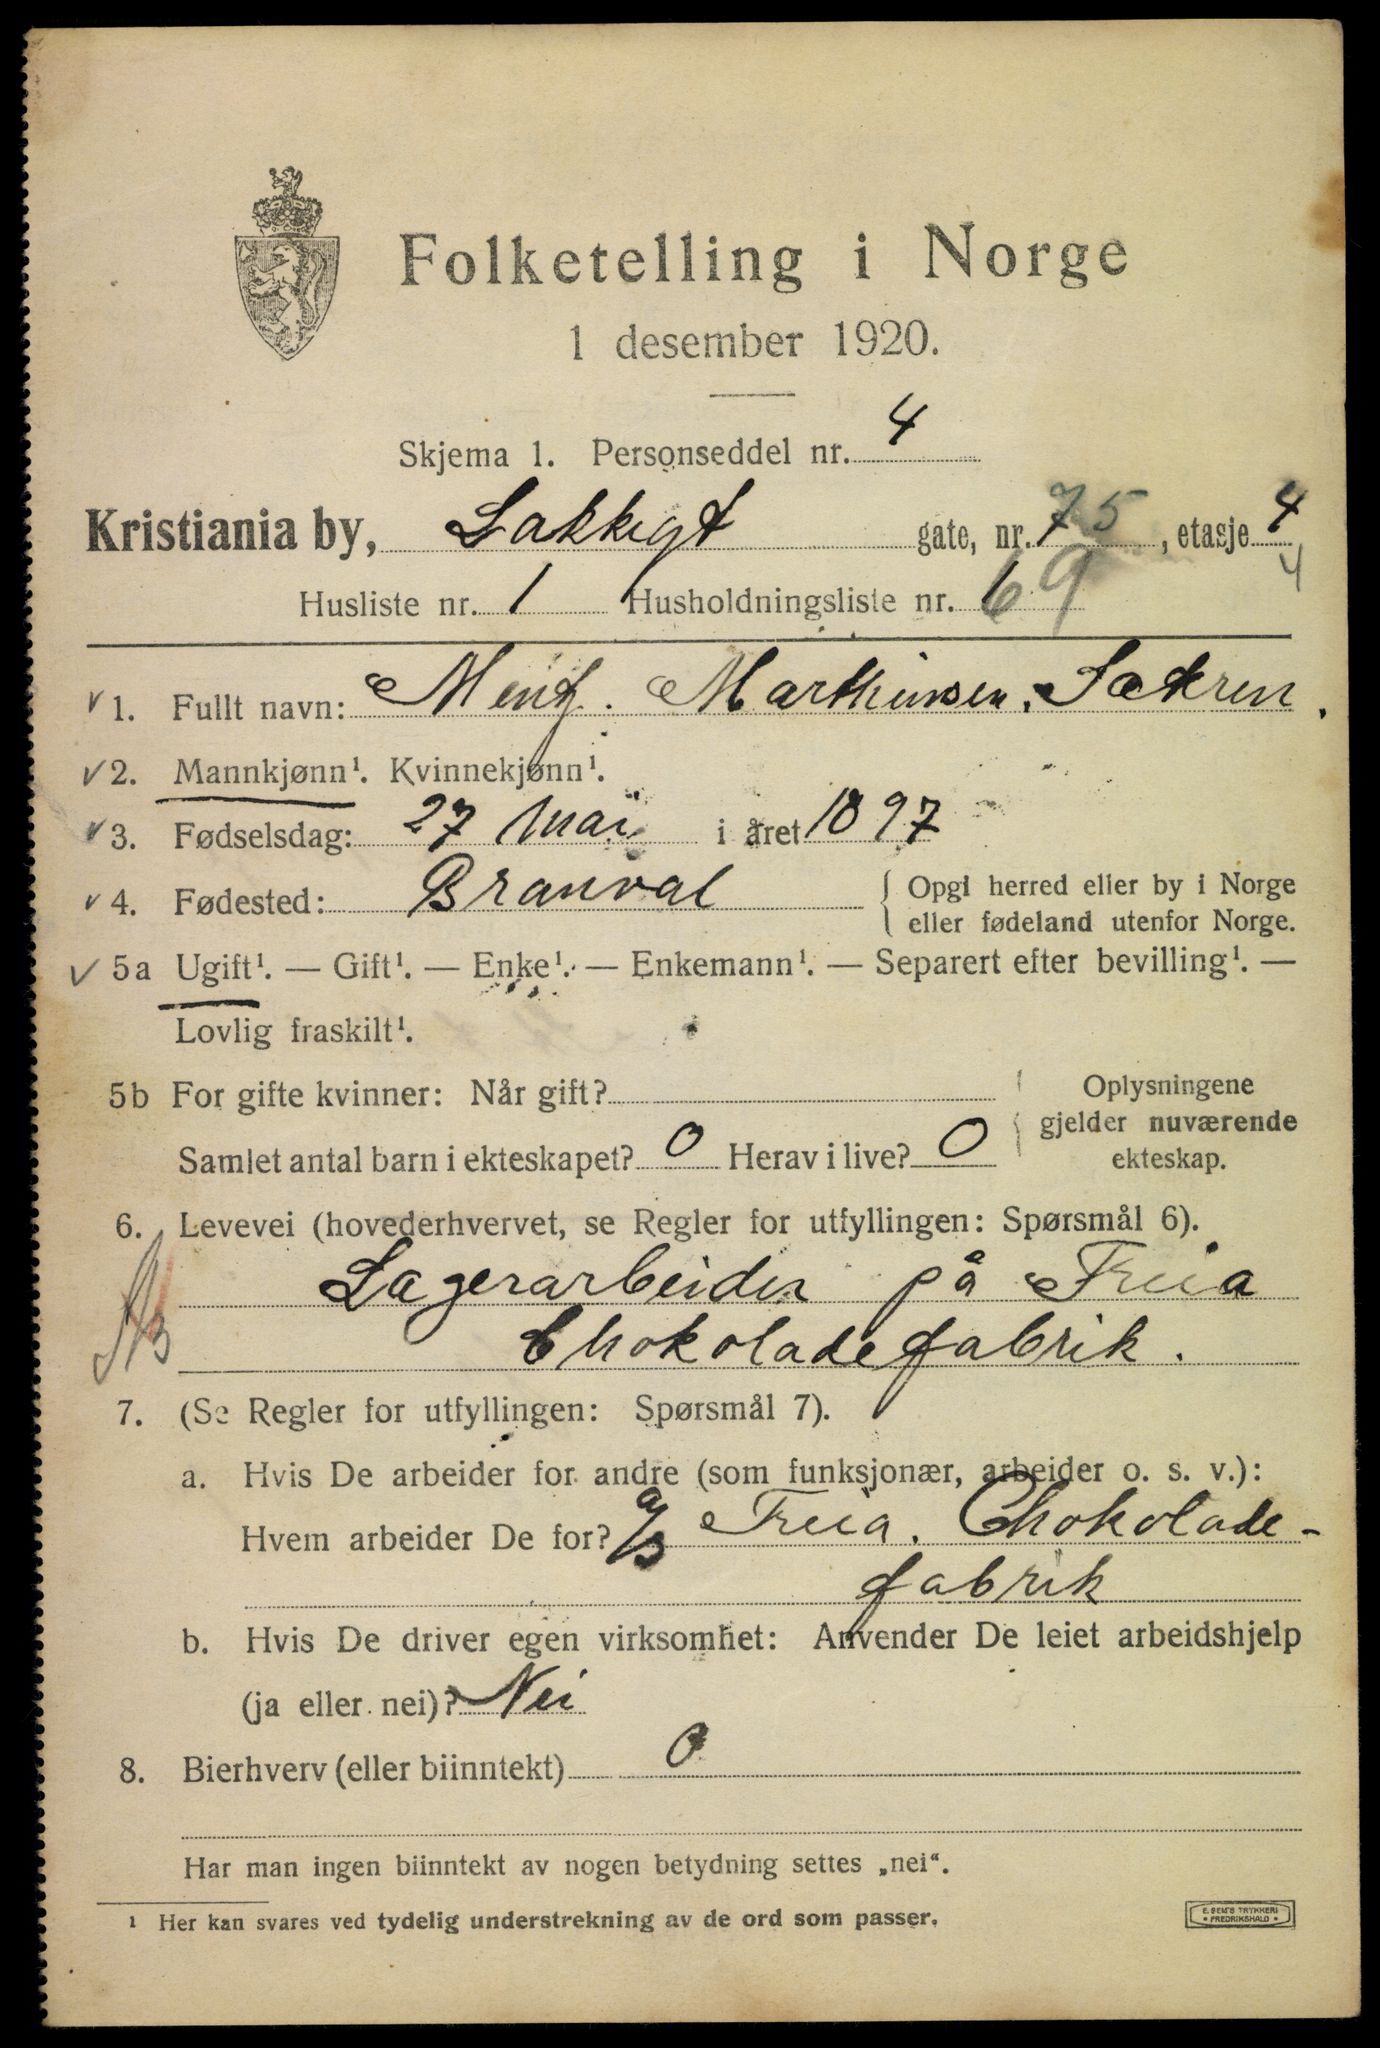 Folketelling i Norge
1 desember 1920.
Skjema 1. Personseddel nr. 4
Kristiania by, Lakkegt gate, nr. 75, etasje 4
4
Husliste nr. 1 Husholdningsliste nr. 69
1. Fullt navn: Mentz. Marthinsen. Sætren.
2. Mannkjønn¹. Kvinnekjønn¹.
3. Fødselsdag: 27 Mai i året 1897
4. Fødested: Branval { Opgi herred eller by i Norge
eller fødeland utenfor Norge.
5a Ugift¹. — Gift¹. — Enke¹. — Enkemann¹. — Separert efter bevilling¹. —
Lovlig fraskilt¹.
5b For gifte kvinner: Når gift? Oplysningene
gjelder nuværende
Samlet antal barn i ekteskapet? 0 Herav i live? 0 ekteskap.
6. Levevei (hovederhvervet, se Regler for utfyllingen: Spørsmål 6).
Lagerarbeider på Freia
Chokoladefabrik.
7. (Se Regler for utfyllingen: Spørsmål 7).
a. Hvis De arbeider for andre (som funksjonær, arbeider o. s. v.):
Hvem arbeider De for? a/s Freia. Chokolade-
fabrik
b. Hvis De driver egen virksomhet: Anvender De leiet arbeidshjelp
(ja eller nei)? Nei
8. Bierhverv (eller biinntekt) 0
Har man ingen biinntekt av nogen betydning settes „nei“.
¹ Her kan svares ved tydelig understrekning av de ord som passer.
E. SEM'S TRYKKERI
• FREDRIKSHALD •